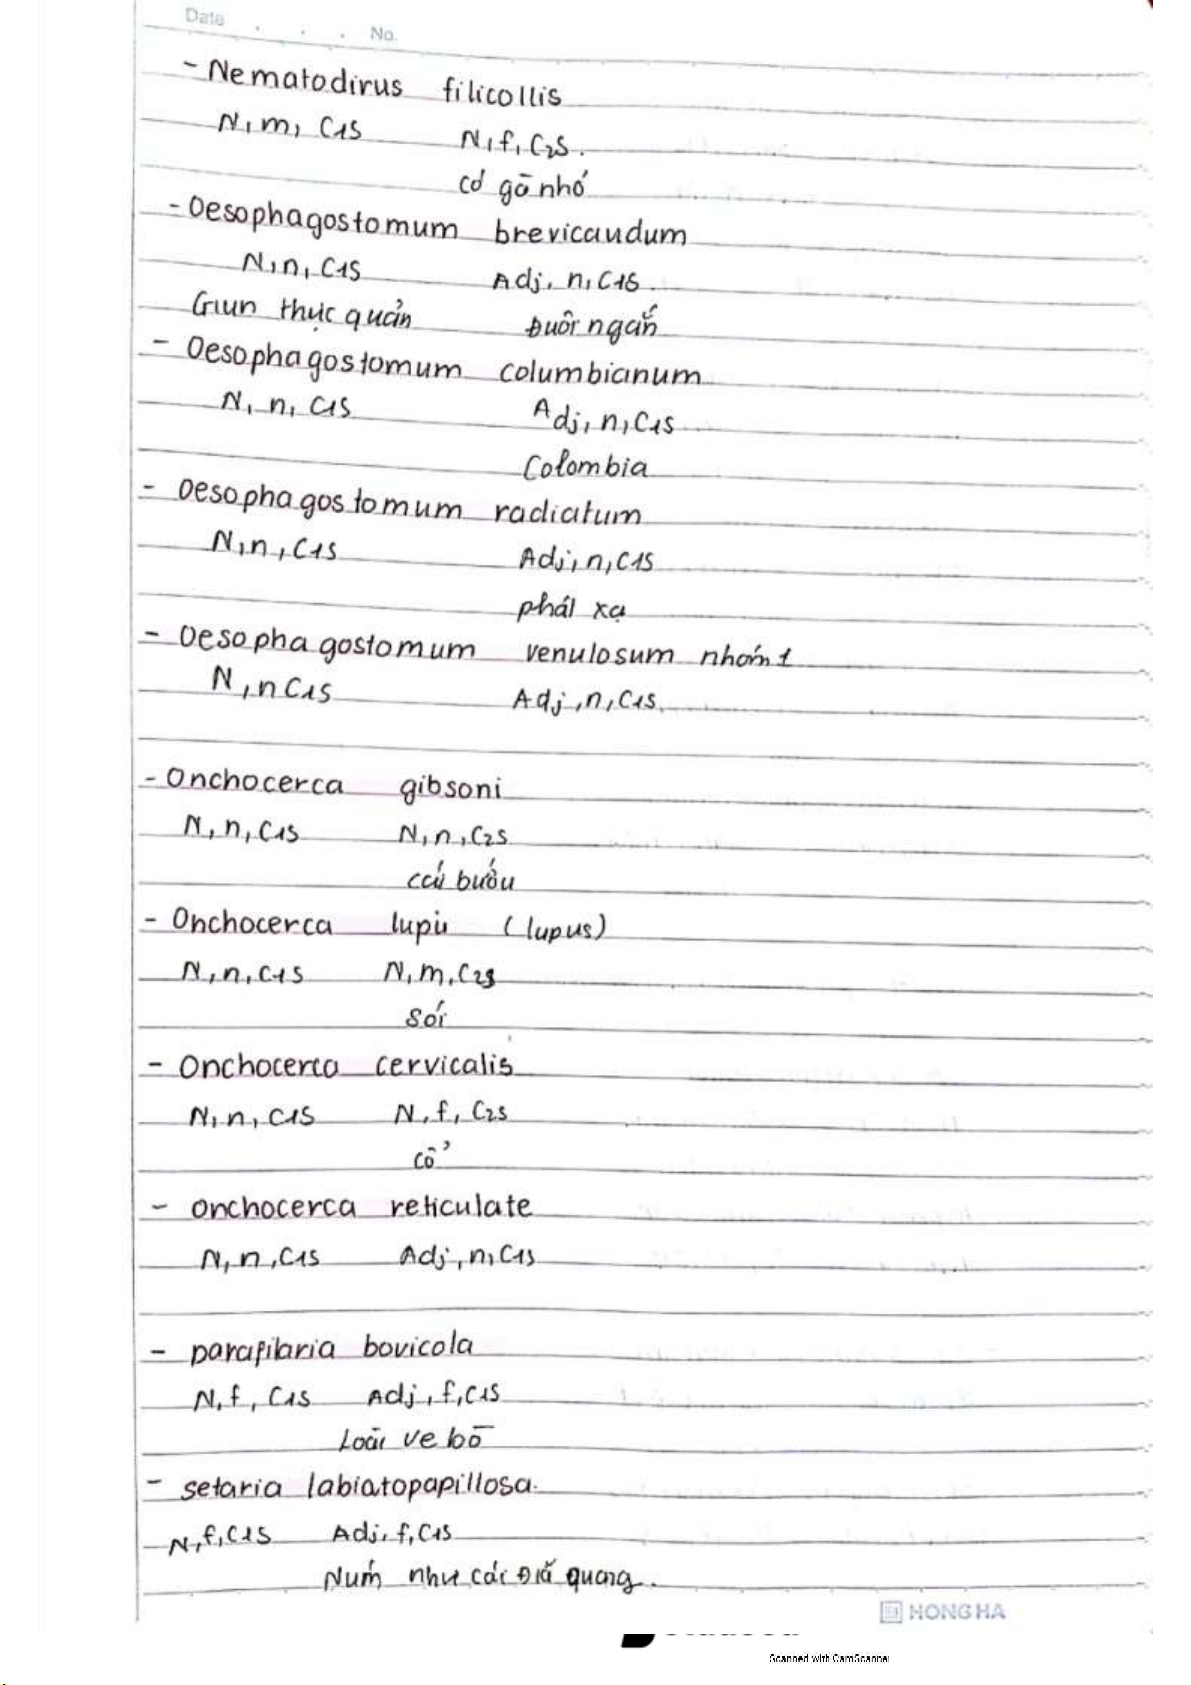 Date . . . No.
- Nematodirus filicollis
N, m, C1S N, f, C2S.
cỏ gà nhỏ
- Oesophagostomum brevicaudum
N, n, C1S Adj, n, C1S.
Giun thực quản Đuôi ngắn
- Oesophagostomum columbianum
N, n, C1S Adj, n, C1S
Colombia
- Oesophagostomum radiatum
N, n, C1S Adj, n, C1S
phát xạ
- Oesophagostomum venulosum nhóm 1
N, n C1S Adj, n, C1S.
- Onchocerca gibsoni
N, n, C1S N, n, C2S
cái bướu
- Onchocerca lupii (lupus)
N, n, C1S N, m, C2S
Sói
- Onchocerca cervicalis
N, n, C1S N, f, C2S
cổ
- onchocerca reticulate
N, n, C1S Adj, n, C1S
- parafilaria bovicola
N, f, C1S Adj, f, C1S
Loài ve bò
- setaria labiatopapillosa.
N, f, C1S Adj, f, C1S
Núm như các đĩa quang.
HONG HA
Scanned with CamScanner